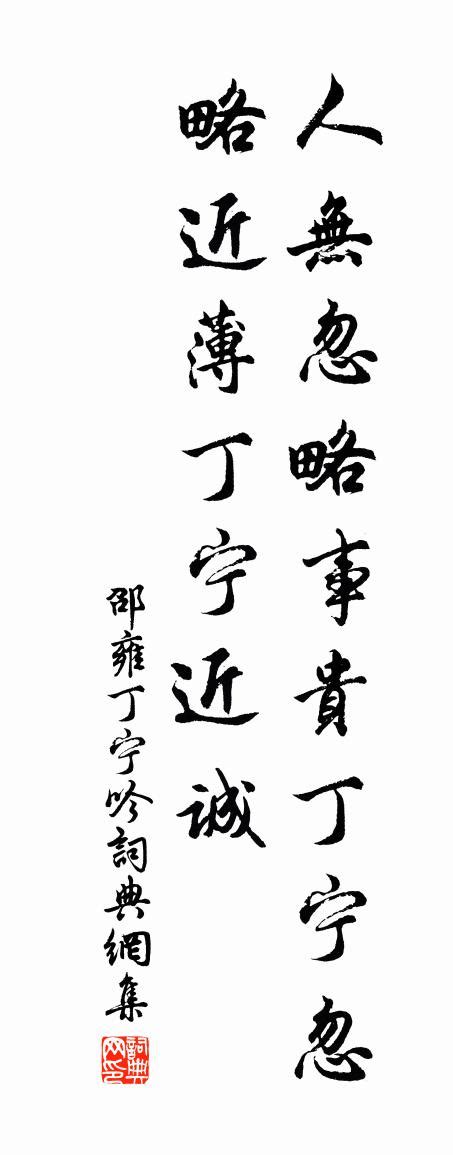 人無忽略事貴丁宁忽
略近薄丁宁近誠
邵雍丁宁吟詞典網集
詞典网印